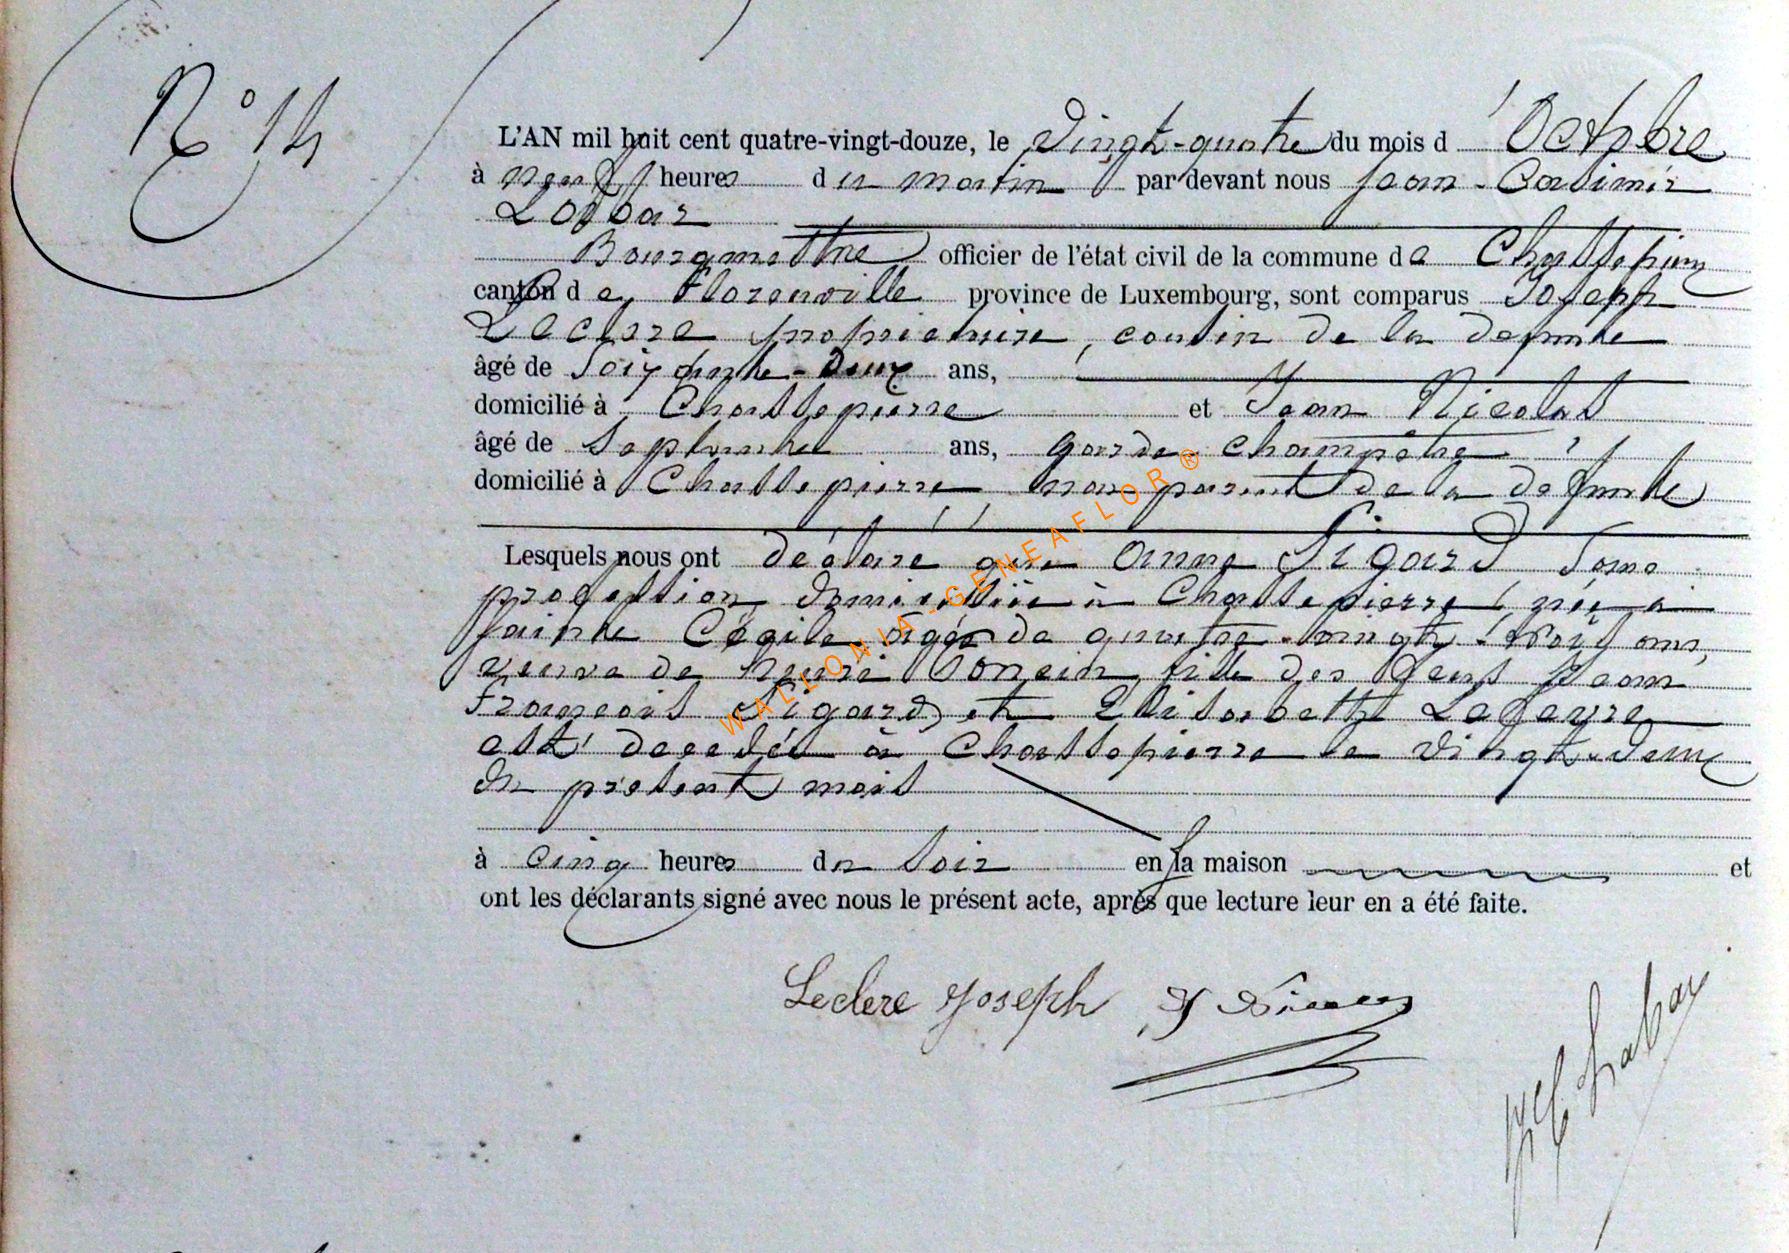 N° 14
L'AN mil huit cent quatre-vingt-douze, le Vingt-quatre du mois d'Octobre
à neuf heures du matin par devant nous Jean-Casimir
Labbar
Bourgmestre officier de l'état civil de la commune de Chassepierre
canton de Florenville province de Luxembourg, sont comparus Joseph
Leclere propriétaire, cousin de la défunte
âgé de Soixante-Deux ans,
domicilié à Chassepierre et Jean Nicolas
âgé de Septante ans, garde champêtre
domicilié à Chassepierre non parent de la défunte
Lesquels nous ont déclaré que Anne Sigard Sans
profession domiciliée à Chassepierre, née à
Sainte Cécile âgée de quatre-vingt-trois ans,
veuve de Henri Poncin fille des feus Jean
François Sigard, et Elisabeth Lefevre
est décédée à Chassepierre le Vingt-deux
du présent mois
à cinq heures du soir en sa maison et
ont les déclarants signé avec nous le présent acte, après que lecture leur en a été faite.
Leclere Joseph J Nicolas
JC Labar
WALLONIA-GENEAFLOR®